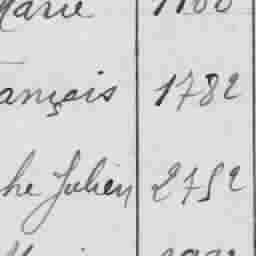 Marie 1100
ançois 1782
he Julien 2752